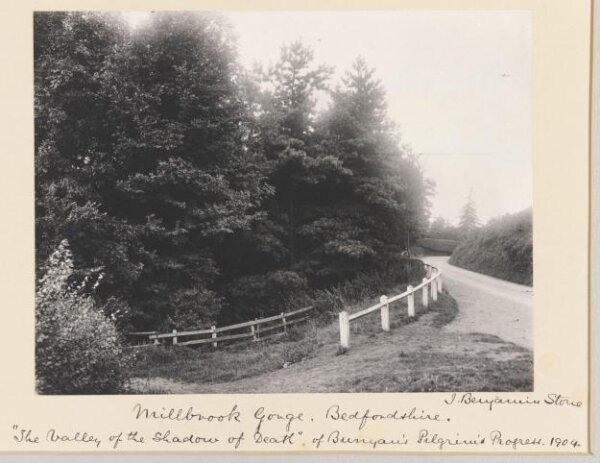 J. Benjamin Stone
Millbrook Gorge. Bedfordshire.
"The Valley of the Shadow of Death", of Bunyan's Pilgrim's Progress. 1904.